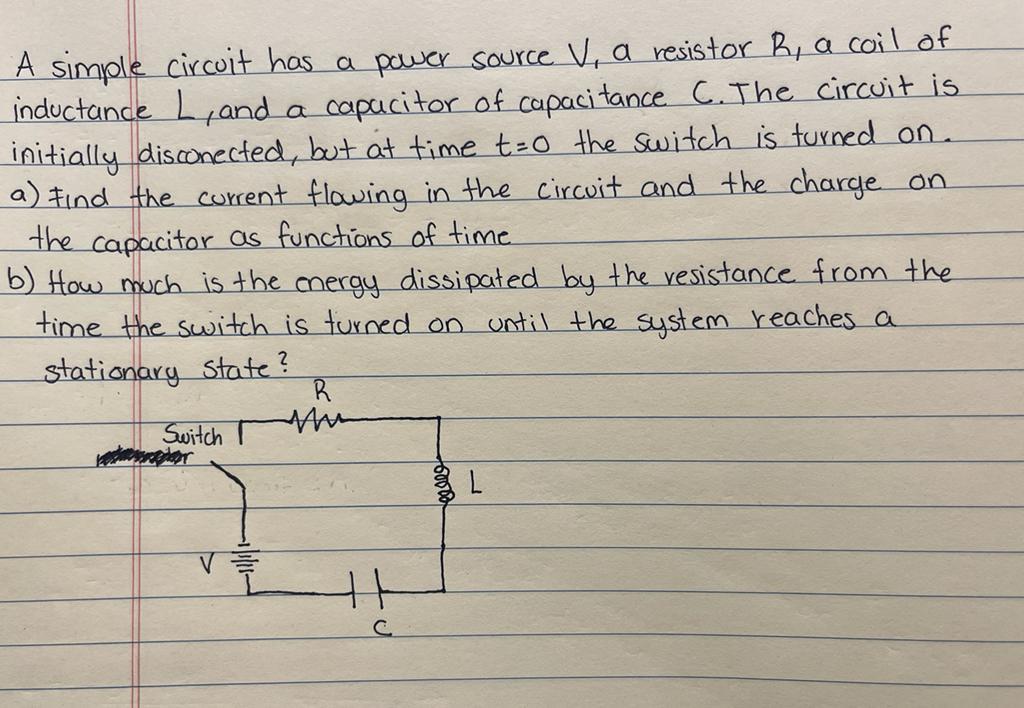 A simple circuit has a power source V, a resistor R, a coil of
inductance L, and a capacitor of capacitance C. The circuit is
initially disconected, but at time t=0 the switch is turned on.
a) Find the current flowing in the circuit and the charge on
the capacitor as functions of time
b) How much is the energy dissipated by the resistance from the
time the switch is turned on until the system reaches a
stationary state?
R
Switch
L
V
C